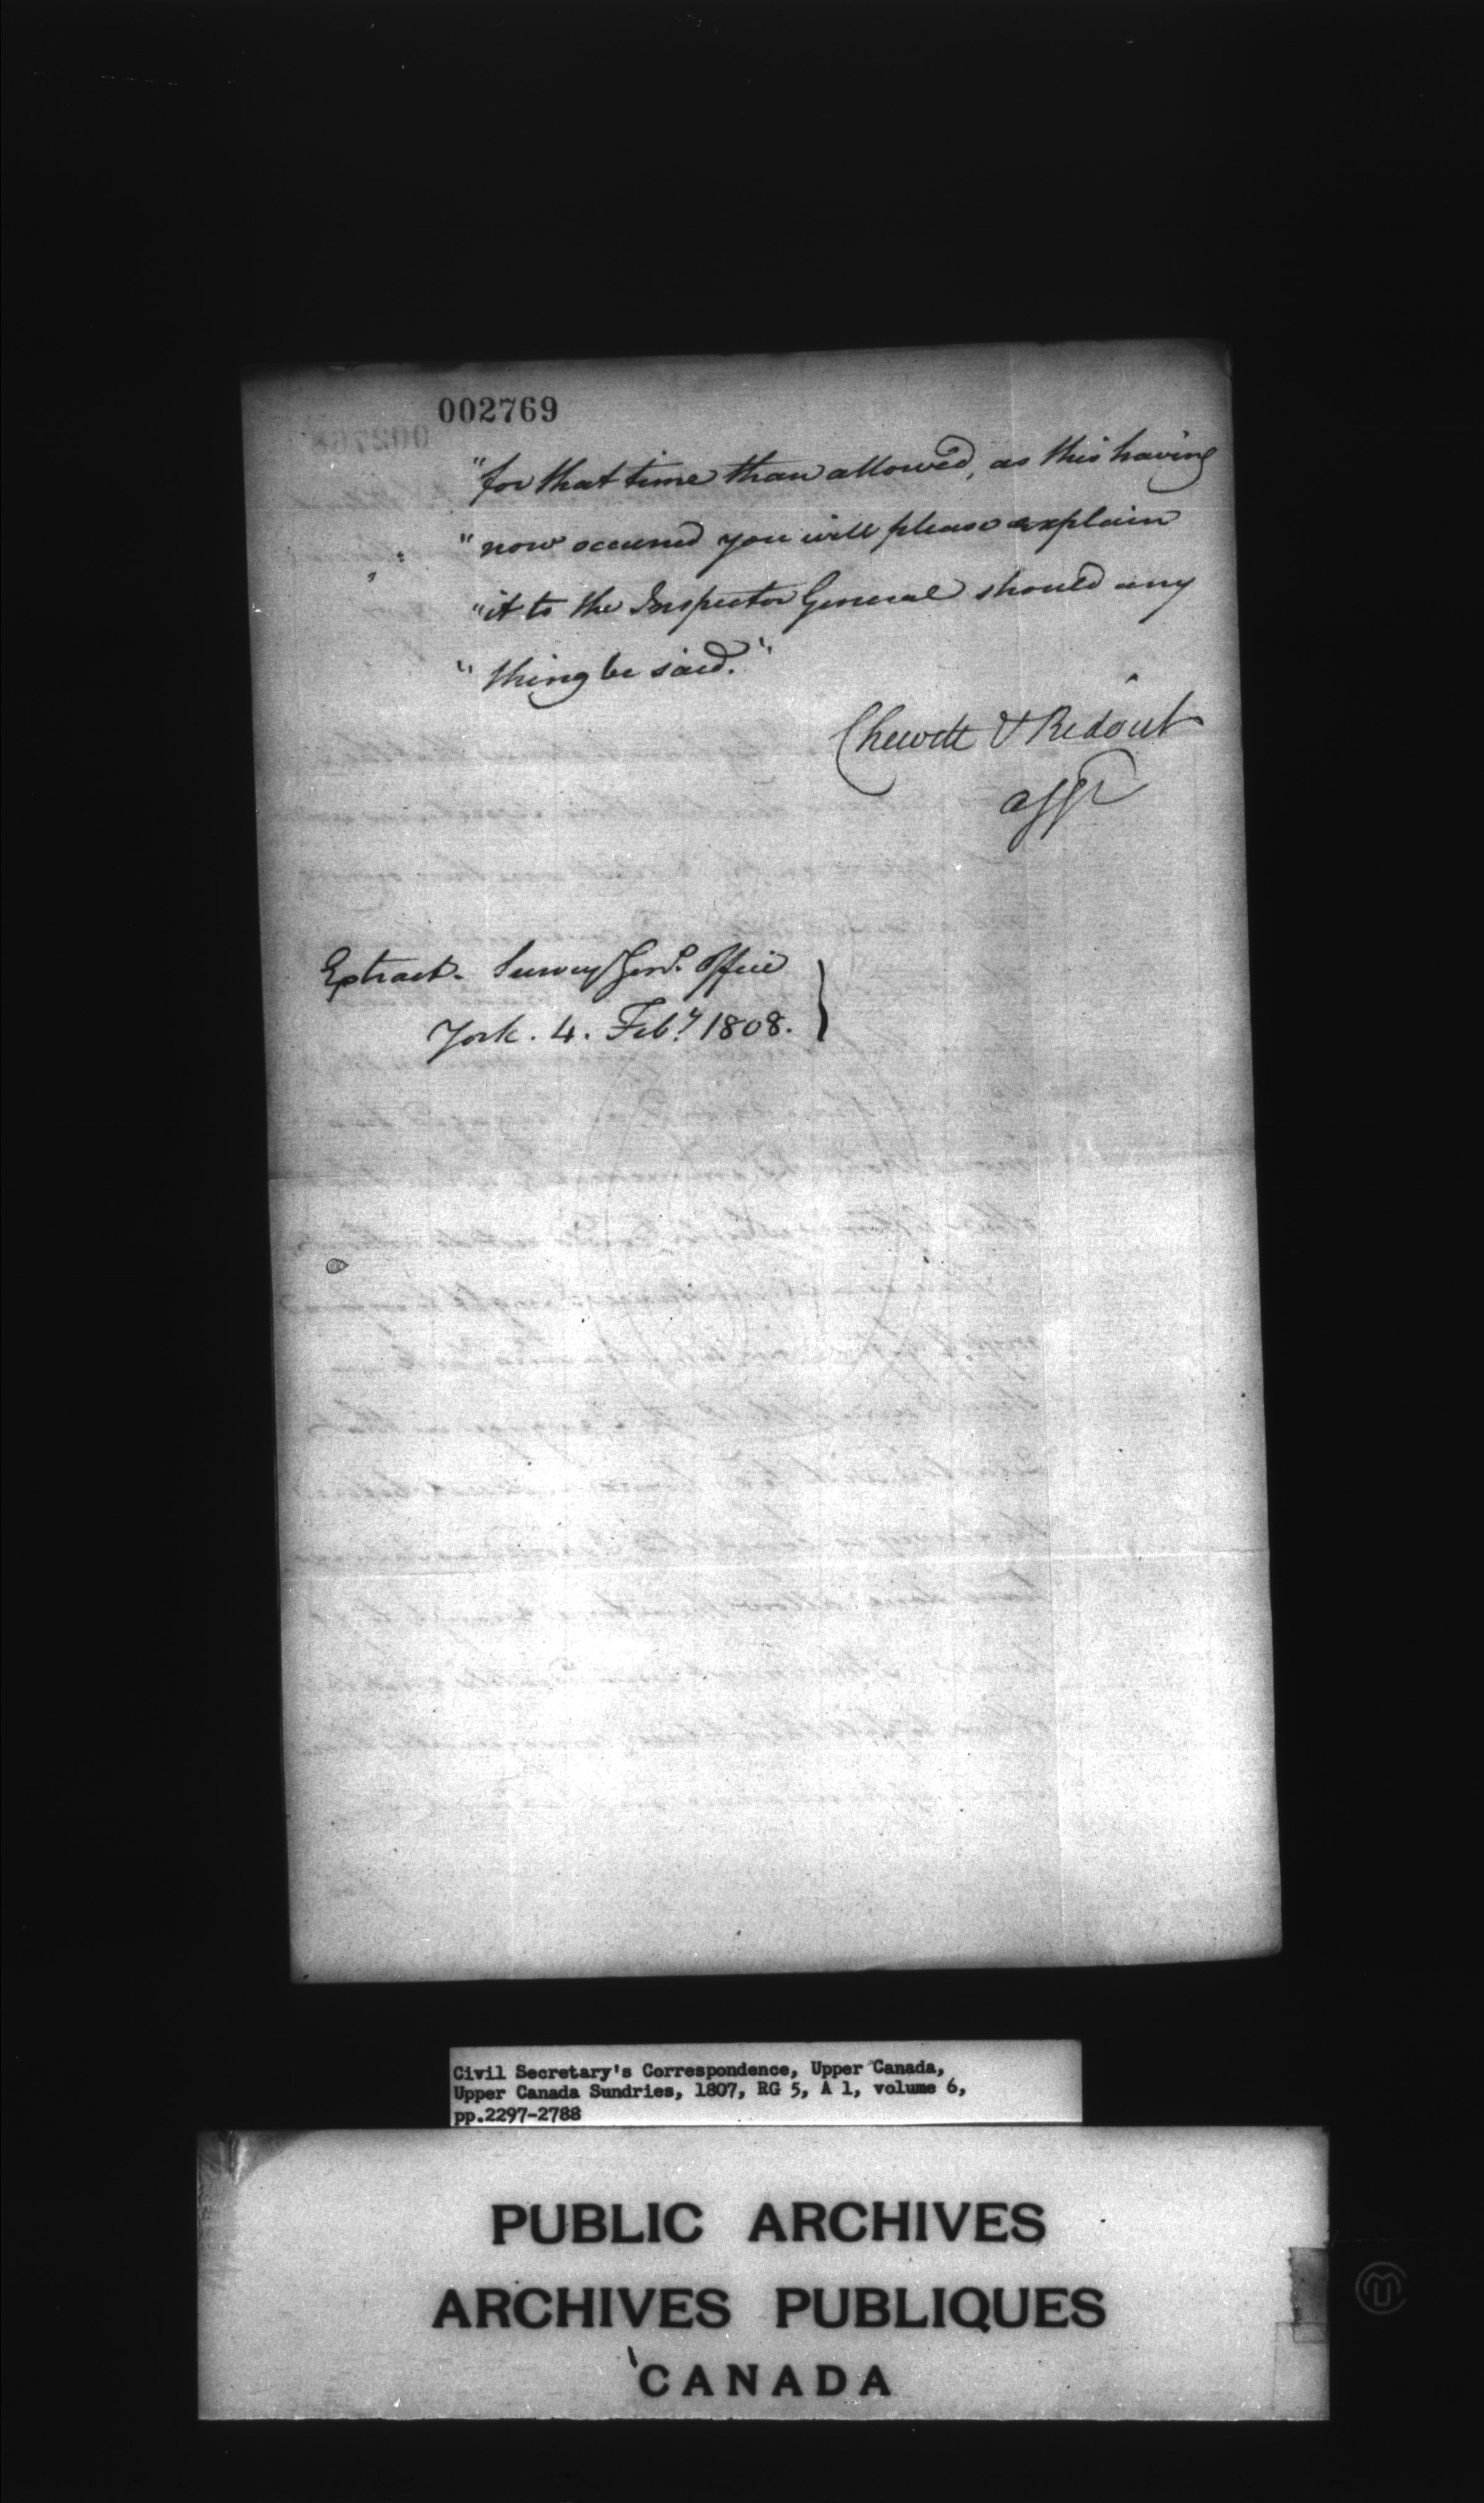 002769
"for that time than allowed, as this having
"now occurred you will please explain
"it to the Inspector General should any
"thing be said."
Chewett & Ridout
Extract. Survey Genl. Office
York. 4. Feby 1808.
Civil Secretary's Correspondence, Upper Canada,
Upper Canada Sundries, 1807, RG 5, A 1, volume 6,
pp.2297-2788
PUBLIC ARCHIVES
ARCHIVES PUBLIQUES
CANADA